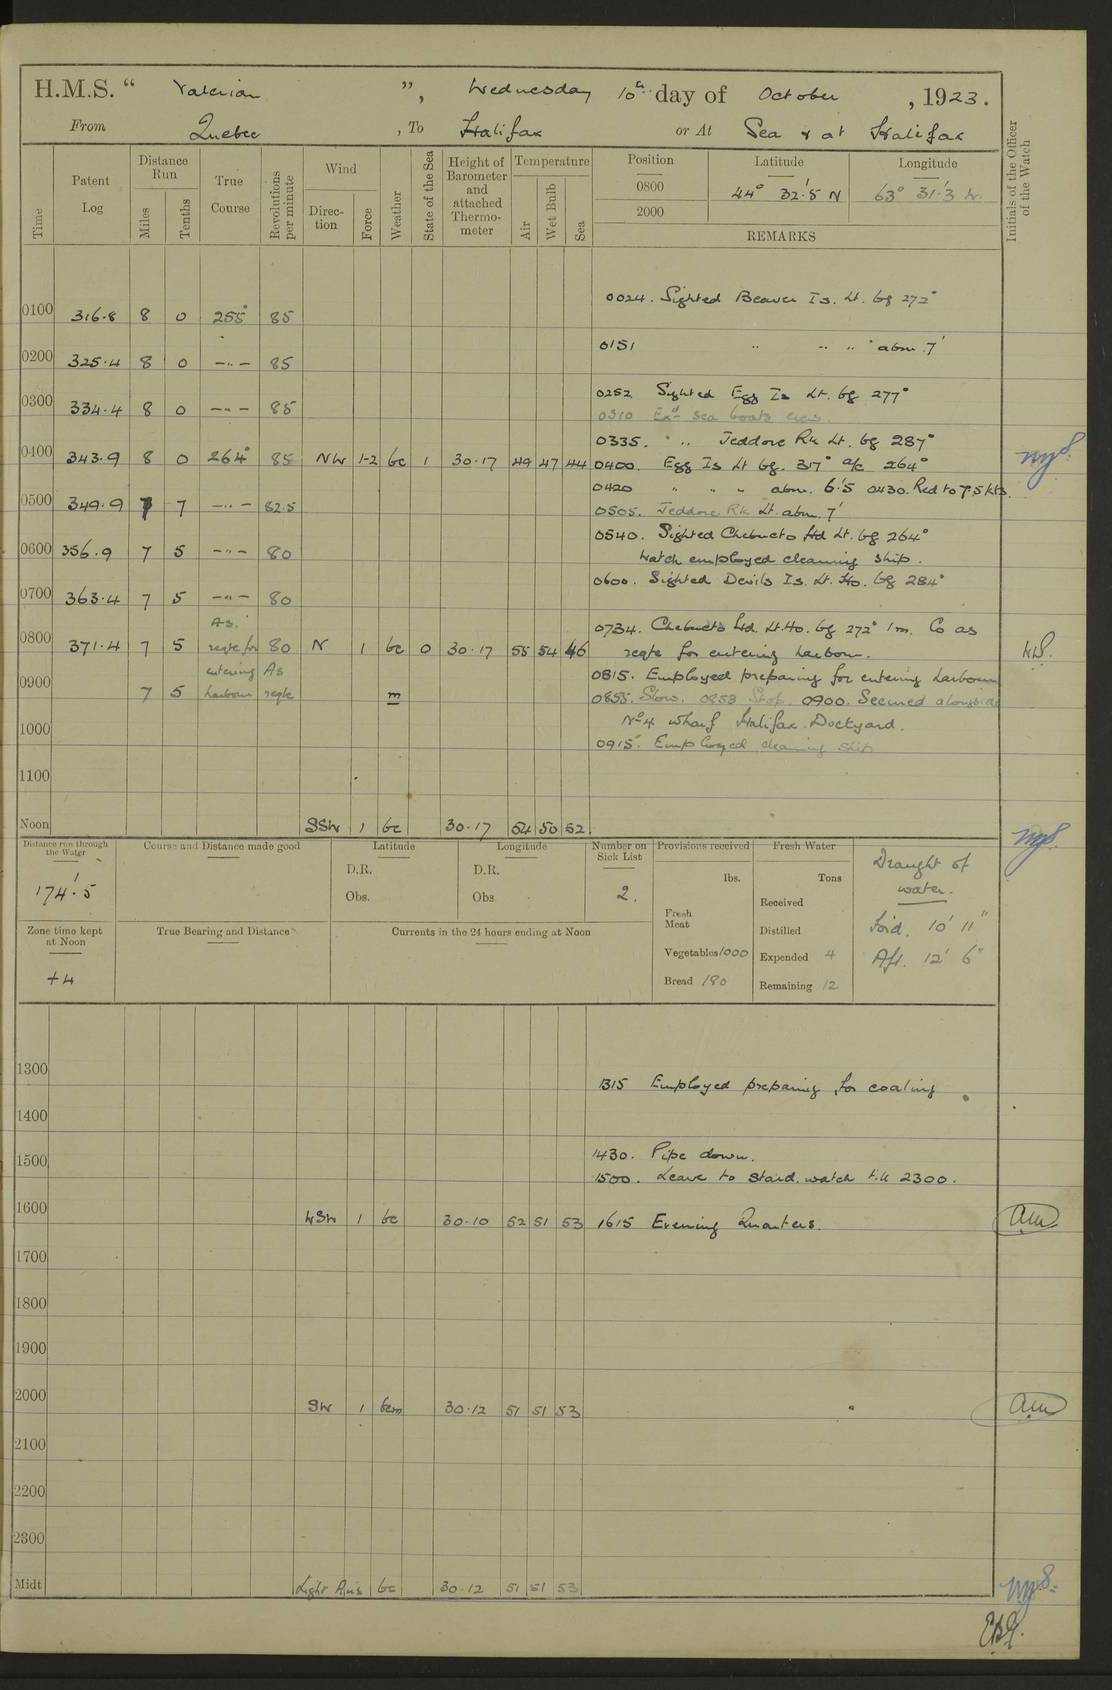 H.M.S. “ Valerian ”, Wednesday 10th day of October , 1923.
From Quebec , To Halifax or At Sea & at Halifax
Time
Patent Log
Distance Run
Miles
Tenths
True Course
Revolutions per minute
Wind
Direction
Force
Weather
State of the Sea
Height of Barometer and attached Thermometer
Temperature
Air
Wet Bulb
Sea
Position
Latitude
Longitude
0800 44° 32'.5 N 63° 31'.3 W.
2000
REMARKS
Initials of the Officer of the Watch
0024. Sighted Beaver Is. Lt. bg 272°
0100 316.8 8 0 255° 85
0151 " " " " abm. 7'
0200 325.4 8 0 -"- 85
0252 Sighted Egg Is Lt. bg 277°
0300 334.4 8 0 -"- 85
0310 Exd sea boats crews.
0335. " " Jeddore Rk Lt. bg 287°
0400 343.9 8 0 264° 85 NW 1-2 bc 1 30.17 49 47 44 0400. Egg Is Lt bg. 317° a/c 264°
0420 " " " abm. 6'.5 0430. Red to 7.5 kts.
0500 349.9 7 7 -"- 82.5 0505. Jeddore Rk Lt. abm. 7'
0540. Sighted Chebucto Hd Lt. bg 264°
0600 356.9 7 5 -"- 80 Watch employed cleaning ship.
0600. Sighted Devils Is. Lt. Ho. bg 284°
0700 363.4 7 5 -"- 80
As.
0734. Chebucto Hd. Lt. Ho. bg 272° 1m. Co as
0800 371.4 7 5 reqte for 80 N 1 bc 0 30.17 55 54 46 reqte for entering harbour.
entering As 0815. Employed preparing for entering harbour
0900 7 5 harbour reqte m 0855. Slow. 0858 Stop. 0900. Secured alongside
No 4 wharf Halifax Dockyard.
1000
0915. Employed cleaning ship
1100
Noon SSW 1 bc 30.17 54 50 52.
Distance run through the Water
174'.5
Course and Distance made good
Latitude
D.R.
Obs.
Longitude
D.R.
Obs
Number on Sick List
2.
Provisions received
lbs.
Fresh Meat
Vegetables 1000
Bread 180
Fresh Water
Tons
Received
Distilled
Expended 4
Remaining 12
Draught of
water.
For'd. 10' 11"
Aft. 12' 6"
Zone time kept at Noon
+4
True Bearing and Distance
Currents in the 24 hours ending at Noon
1300
1315 Employed preparing for coaling
1400
1430. Pipe down.
1500
1500. Leave to Starbd. watch till 2300.
1600 WSW 1 bc 30.10 52 51 53 1615 Evening Quarters.
1700
1800
1900
2000 SW 1 bcm 30.12 51 51 53
2100
2200
2300
Midt Light Airs bc 30.12 51 51 53